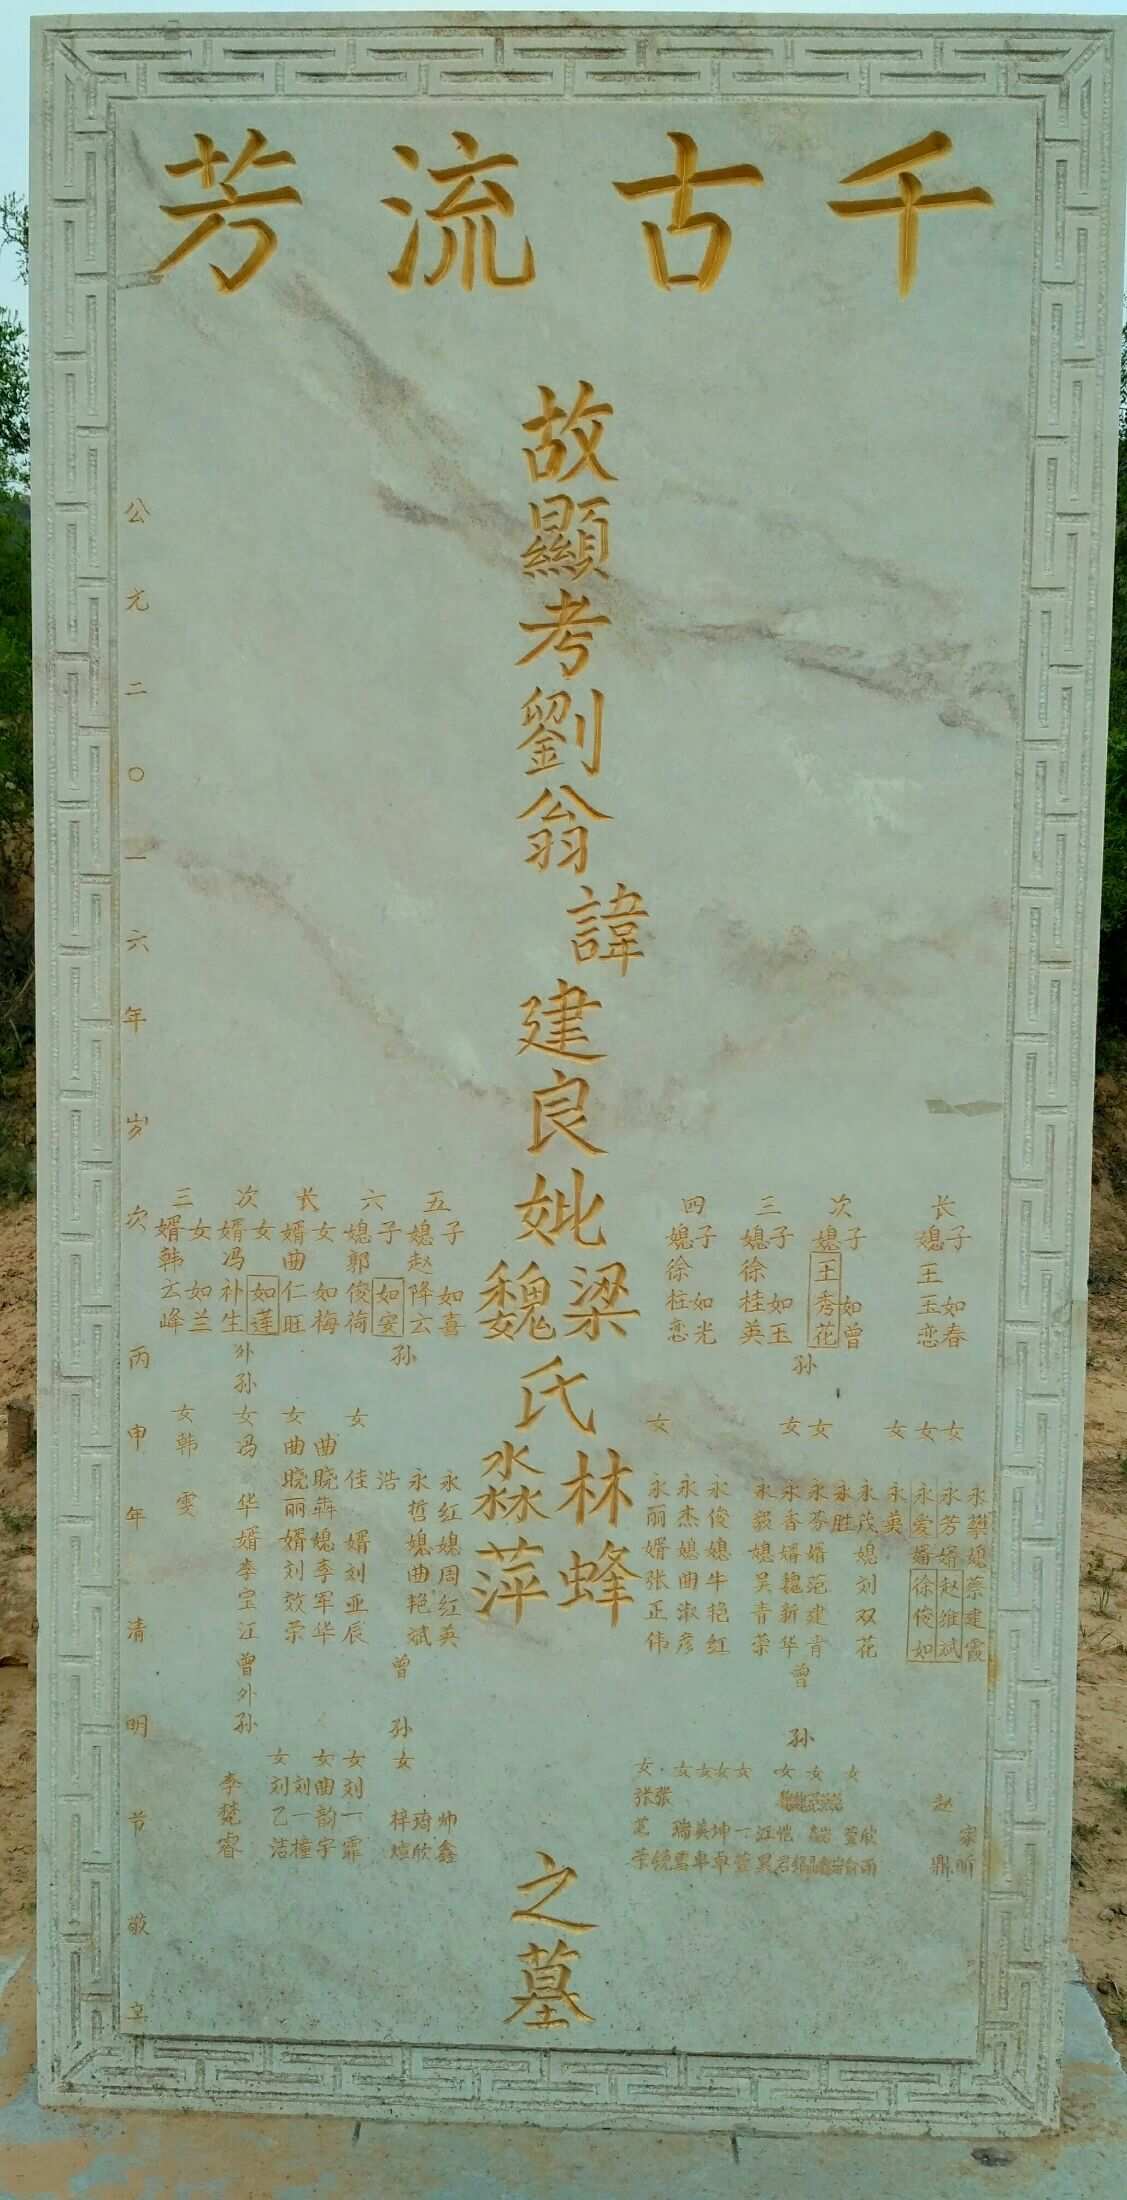 千古流芳
故顯考劉翁諱建良妣梁氏林蜂之墓
魏氏淼萍
长子如春
媳王玉恋
次子如曾
媳王秀花
三子如玉
媳徐桂英
四子如光
媳徐柱恋
孙
永攀媳蔡建霞
女永芳婿赵维斌
女永爱婿徐俊如
女永英
永茂媳刘双花
永胜
女永芬婿范建青
女永香婿魏新华
永毅媳吴青荣
永俊媳牛艳红
永杰媳曲淑彦
女永丽婿张正伟
曾孙
家昕
赵鼎
五子如喜
媳赵降云
六子如安
媳郭俊荷
长女如梅
婿曲仁旺
次女如莲
婿冯补生
三女如兰
婿韩云峰
孙
永红媳周红英
永哲媳曲艳斌
浩
女佳婿刘亚辰
外孙
曲晓犇媳李军华
女曲晓丽婿刘效荣
女冯华婿李宝江
女韩雯
曾孙
帅鑫
琦欣
女梓煊
曾外孙
女刘一霏
女曲韵宇
刘一撞
女刘乙洁
李梵睿
公元二〇一六年岁次丙申年清明节敬立